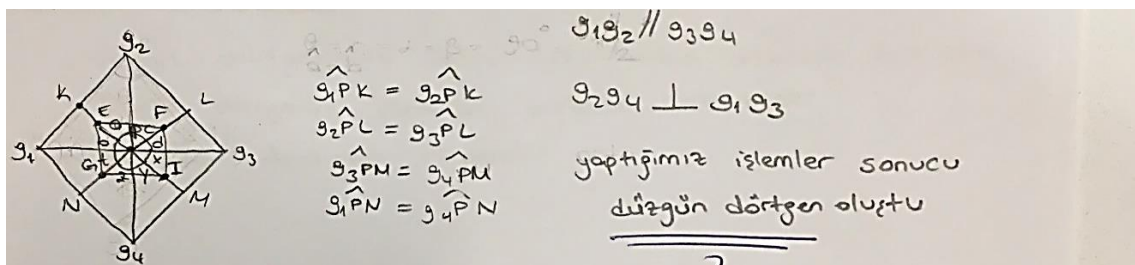 g2
K
L
E
F
g1
g3
G
I
N
M
g4
g1P̂K = g2P̂K
g2P̂L = g3P̂L
g3P̂M = g4P̂M
g1P̂N = g4P̂N
g1g2 // g3g4
g2g4 ⊥ g1g3
yaptığımız işlemler sonucu
düzgün dörtgen oluştu